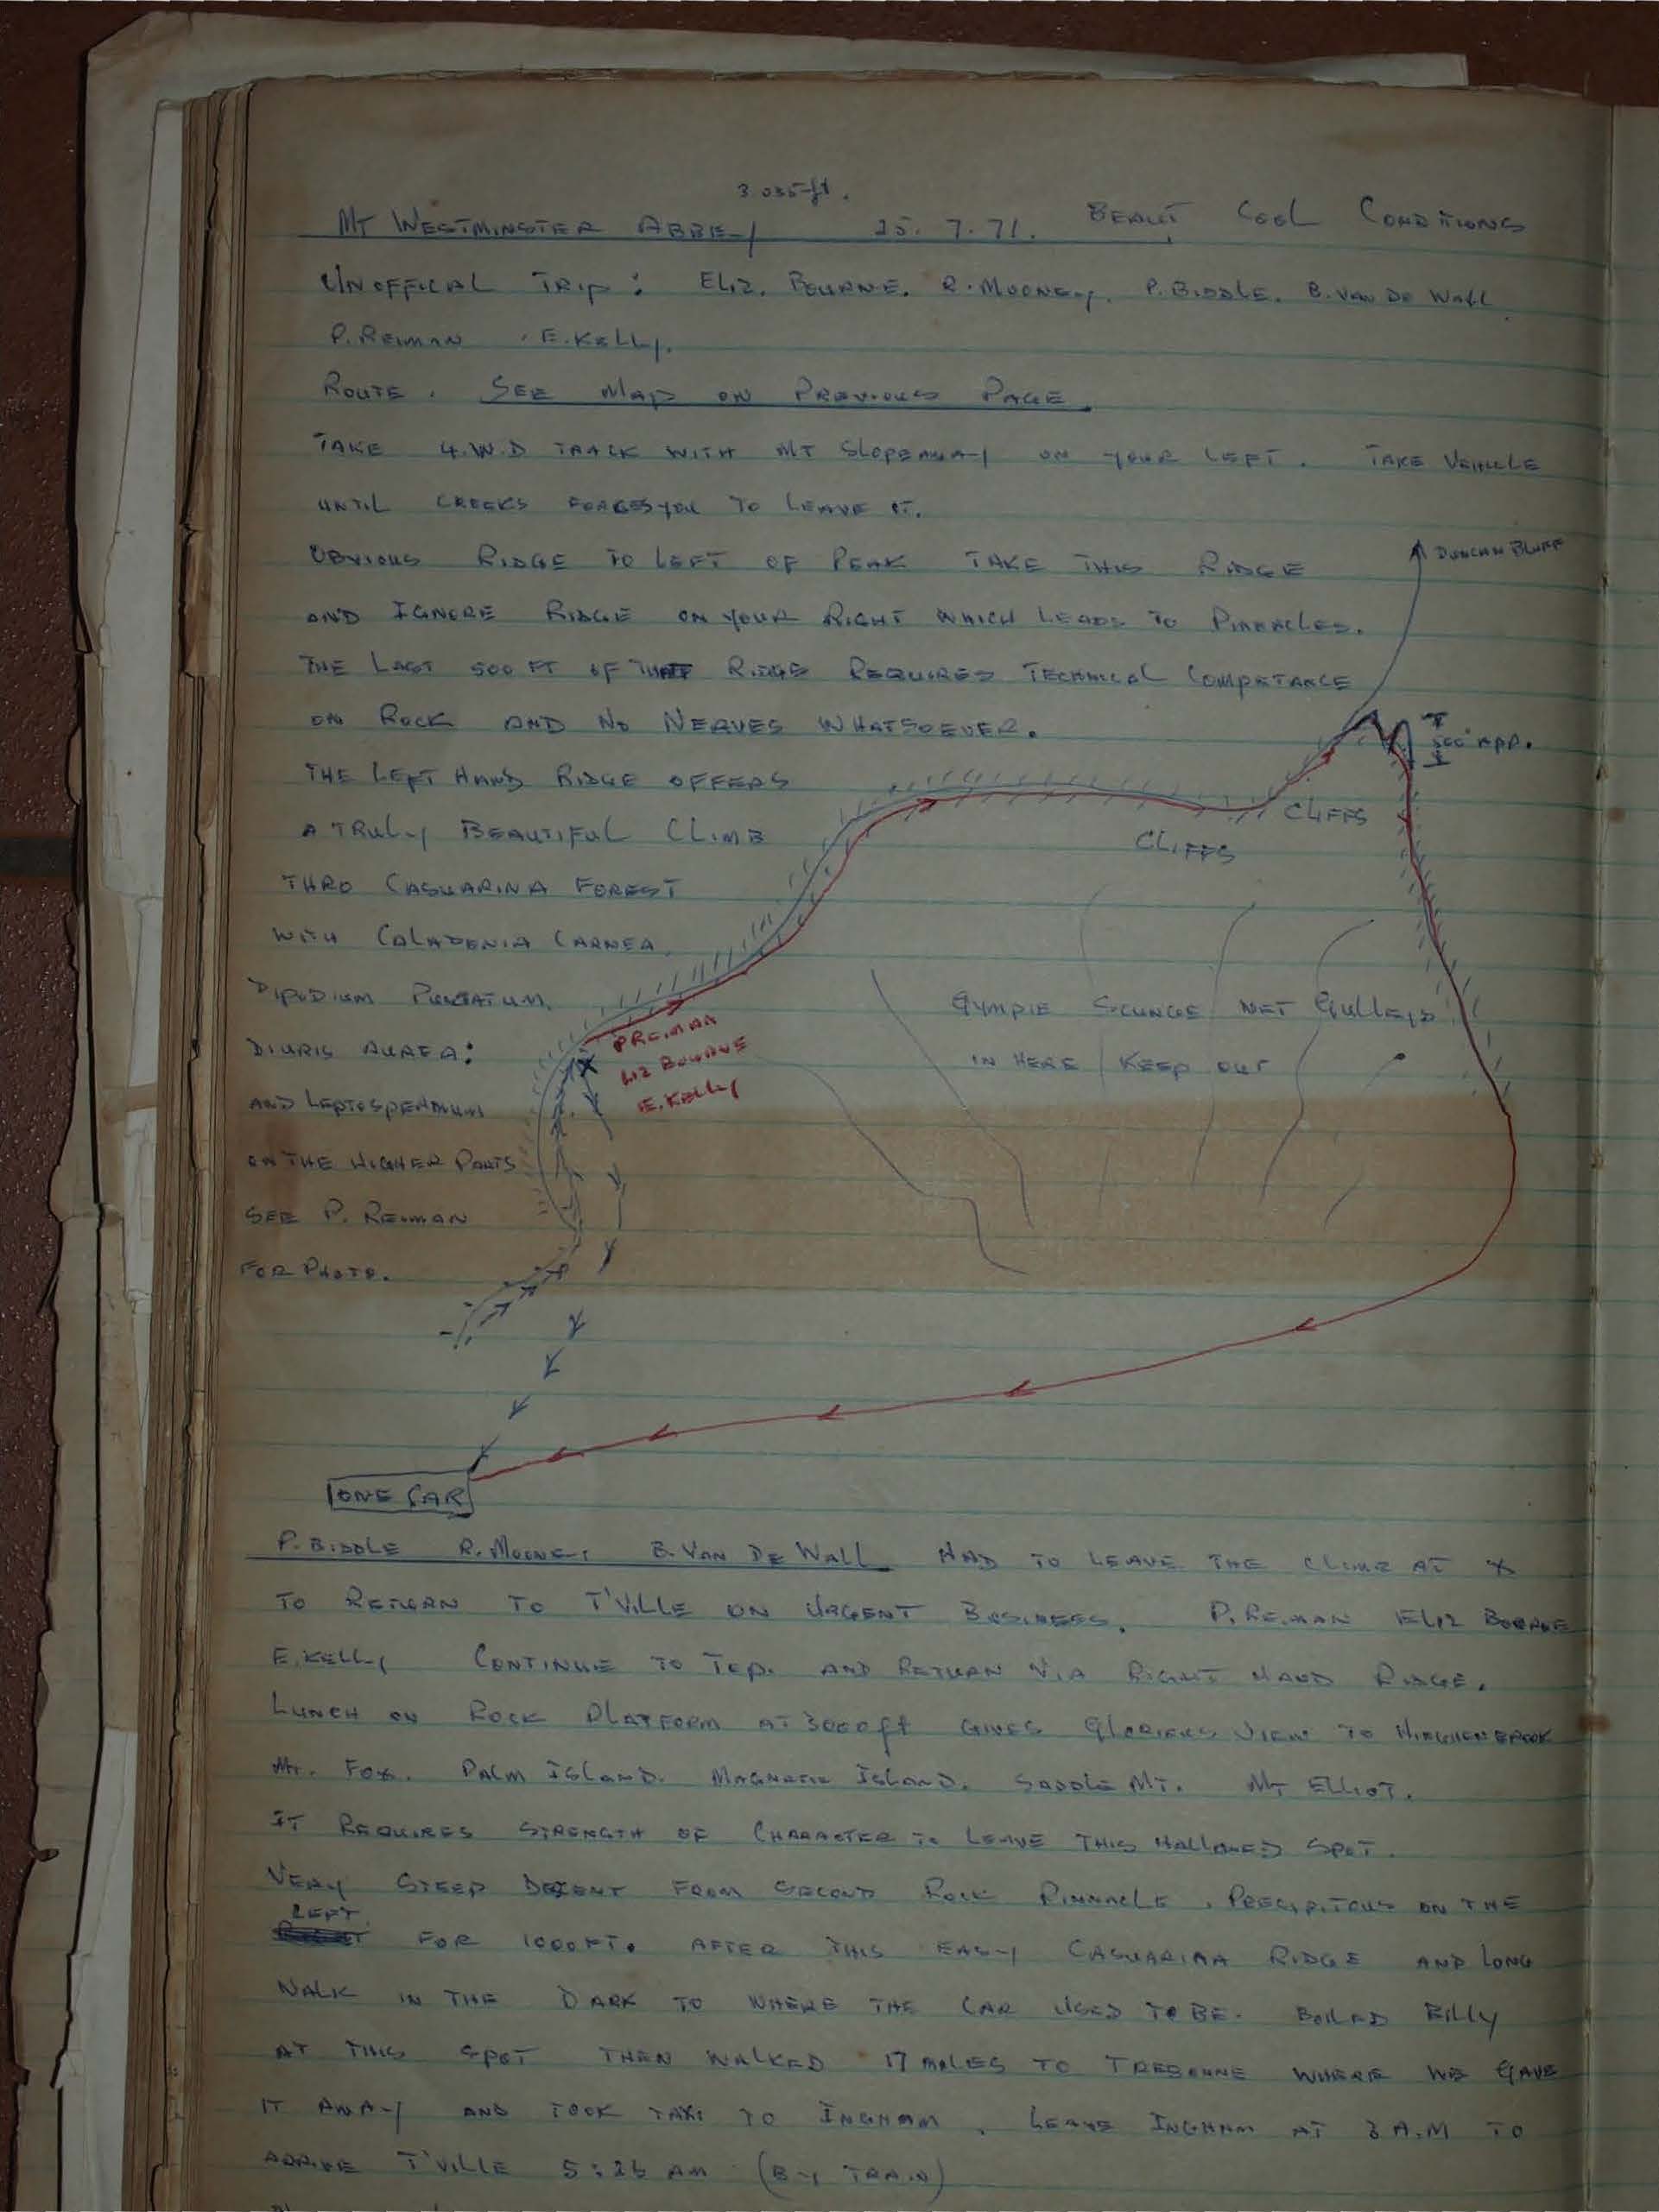 3035 ft.
MT WESTMINSTER ABBEY 25.7.71. BEAUT COOL CONDITIONS
UNOFFICAL TRIP: ELIZ. BOURNE. R. MOONEY. P. BIDDLE. B. VAN DE WALL
P. REIMAN . E. KELLY.
ROUTE. SEE MAP ON PREVIOUS PAGE.
TAKE 4.W.D TRACK WITH MT SLOPEAWAY ON YOUR LEFT. TAKE VEHICLE
UNTIL CREEKS FORCES YOU TO LEAVE IT.
OBVIOUS RIDGE TO LEFT OF PEAK TAKE THIS RIDGE
DUNCAN BLUFF
AND IGNORE RIDGE ON YOUR RIGHT WHICH LEADS TO PINNACLES.
THE LAST 500 FT OF THAT RIDGE REQUIRES TECHNICAL COMPETANCE
ON ROCK AND NO NERVES WHATSOEVER.
500' APP.
THE LEFT HAND RIDGE OFFERS
CLIFFS
A TRULY BEAUTIFUL CLIMB
CLIFFS
THRO CASUARINA FOREST
WITH CALADENIA CARNEA
DIPODIUM PUNCTATUM,
GYMPIE SCUNGE NET GULLEYS
DIURIS AUREA:
IN HERE KEEP OUT
P REIMAN
LIZ BOURNE
E. KELLY
AND LEPTOSPERMUM
ON THE HIGHER PARTS
SEE P. REIMAN
FOR PHOTO.
ONE CAR
P. BIDDLE R. MOONEY B. VAN DE WALL HAD TO LEAVE THE CLIMB AT X
TO RETURN TO T'VILLE ON URGENT BUSINESS. P. REIMAN ELIZ BOURNE
E. KELLY CONTINUE TO TOP. AND RETURN VIA RIGHT HAND RIDGE.
LUNCH ON ROCK PLATFORM AT 3000 ft GIVES GLORIOUS VIEW TO HINCHENBROOK
MT. FOX. PALM ISLAND. MAGNETIC ISLAND. SADDLE MT. MT ELLIOT.
IT REQUIRES STRENGTH OF CHARACTER TO LEAVE THIS HALLOWED SPOT.
VERY STEEP DECENT FROM SECOND ROCK PINNACLE. PRECIPITOUS ON THE
LEFT
FOR 1000 FT. AFTER THIS EASY CASUARINA RIDGE AND LONG
WALK IN THE DARK TO WHERE THE CAR USED TO BE. BOILED BILLY
AT THIS SPOT THEN WALKED 17 MILES TO TREBONNE WHERE WE GAVE
IT AWAY AND TOOK TAXI TO INGHAM. LEAVE INGHAM AT 3 A.M TO
ARRIVE T'VILLE 5:25 AM (BY TRAIN)